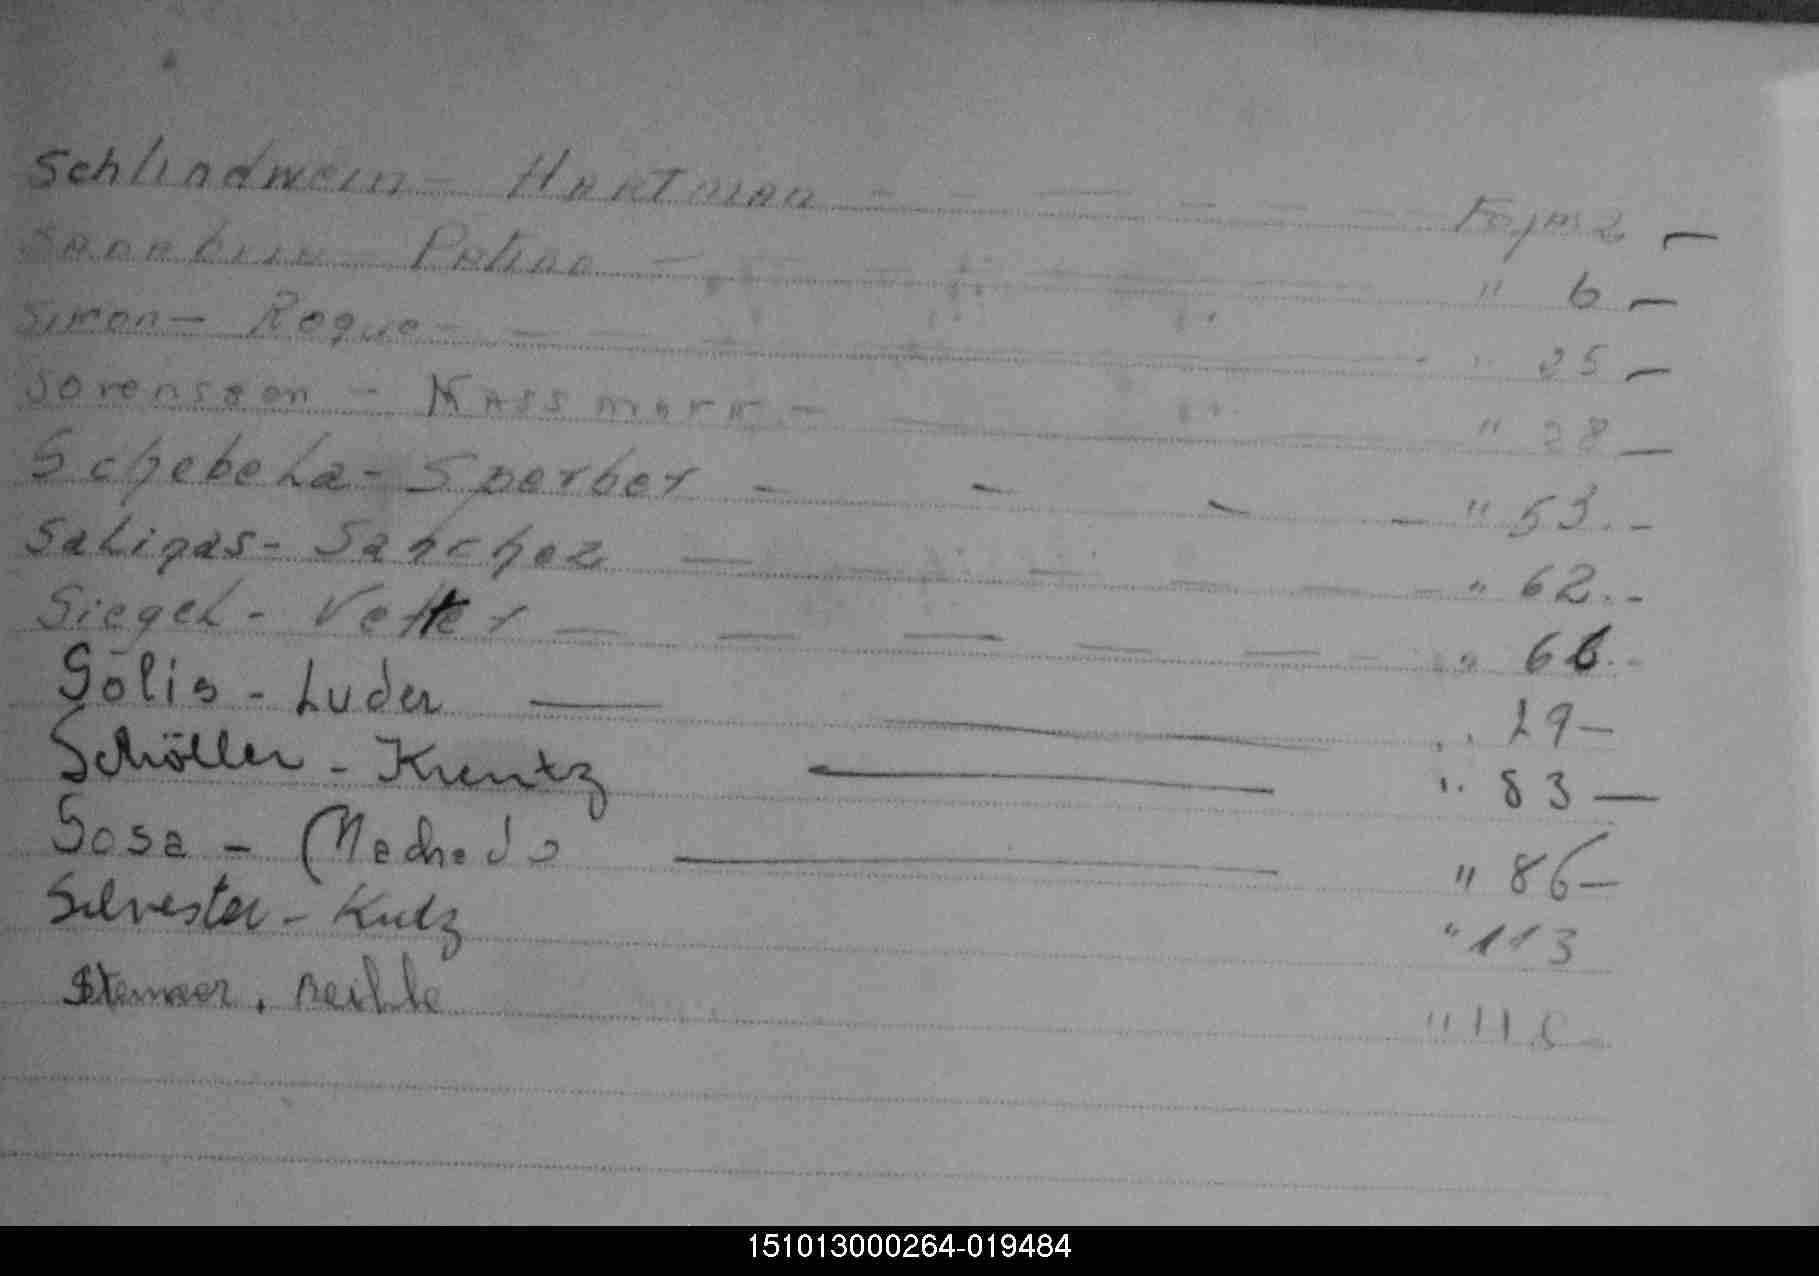 Schlindwein - Hartman - - - - - - Foja 2 -
Sanabria - Patino - - - - " 6 -
Simon - Roque - - - - " 25 -
Sorenssen - Kassmark - - " 28 -
Schebela - Sperber - - - - " 53. -
Saligas - Sanchez - - - - - - " 62. -
Siegel - Vetter - - - - - - " 66. -
Sölis - Luder - - " 29 -
Schöller - Kreutz - " 83 -
Sosa - Machado - " 86 -
Silvester - Kutz " 113
151013000264-019484